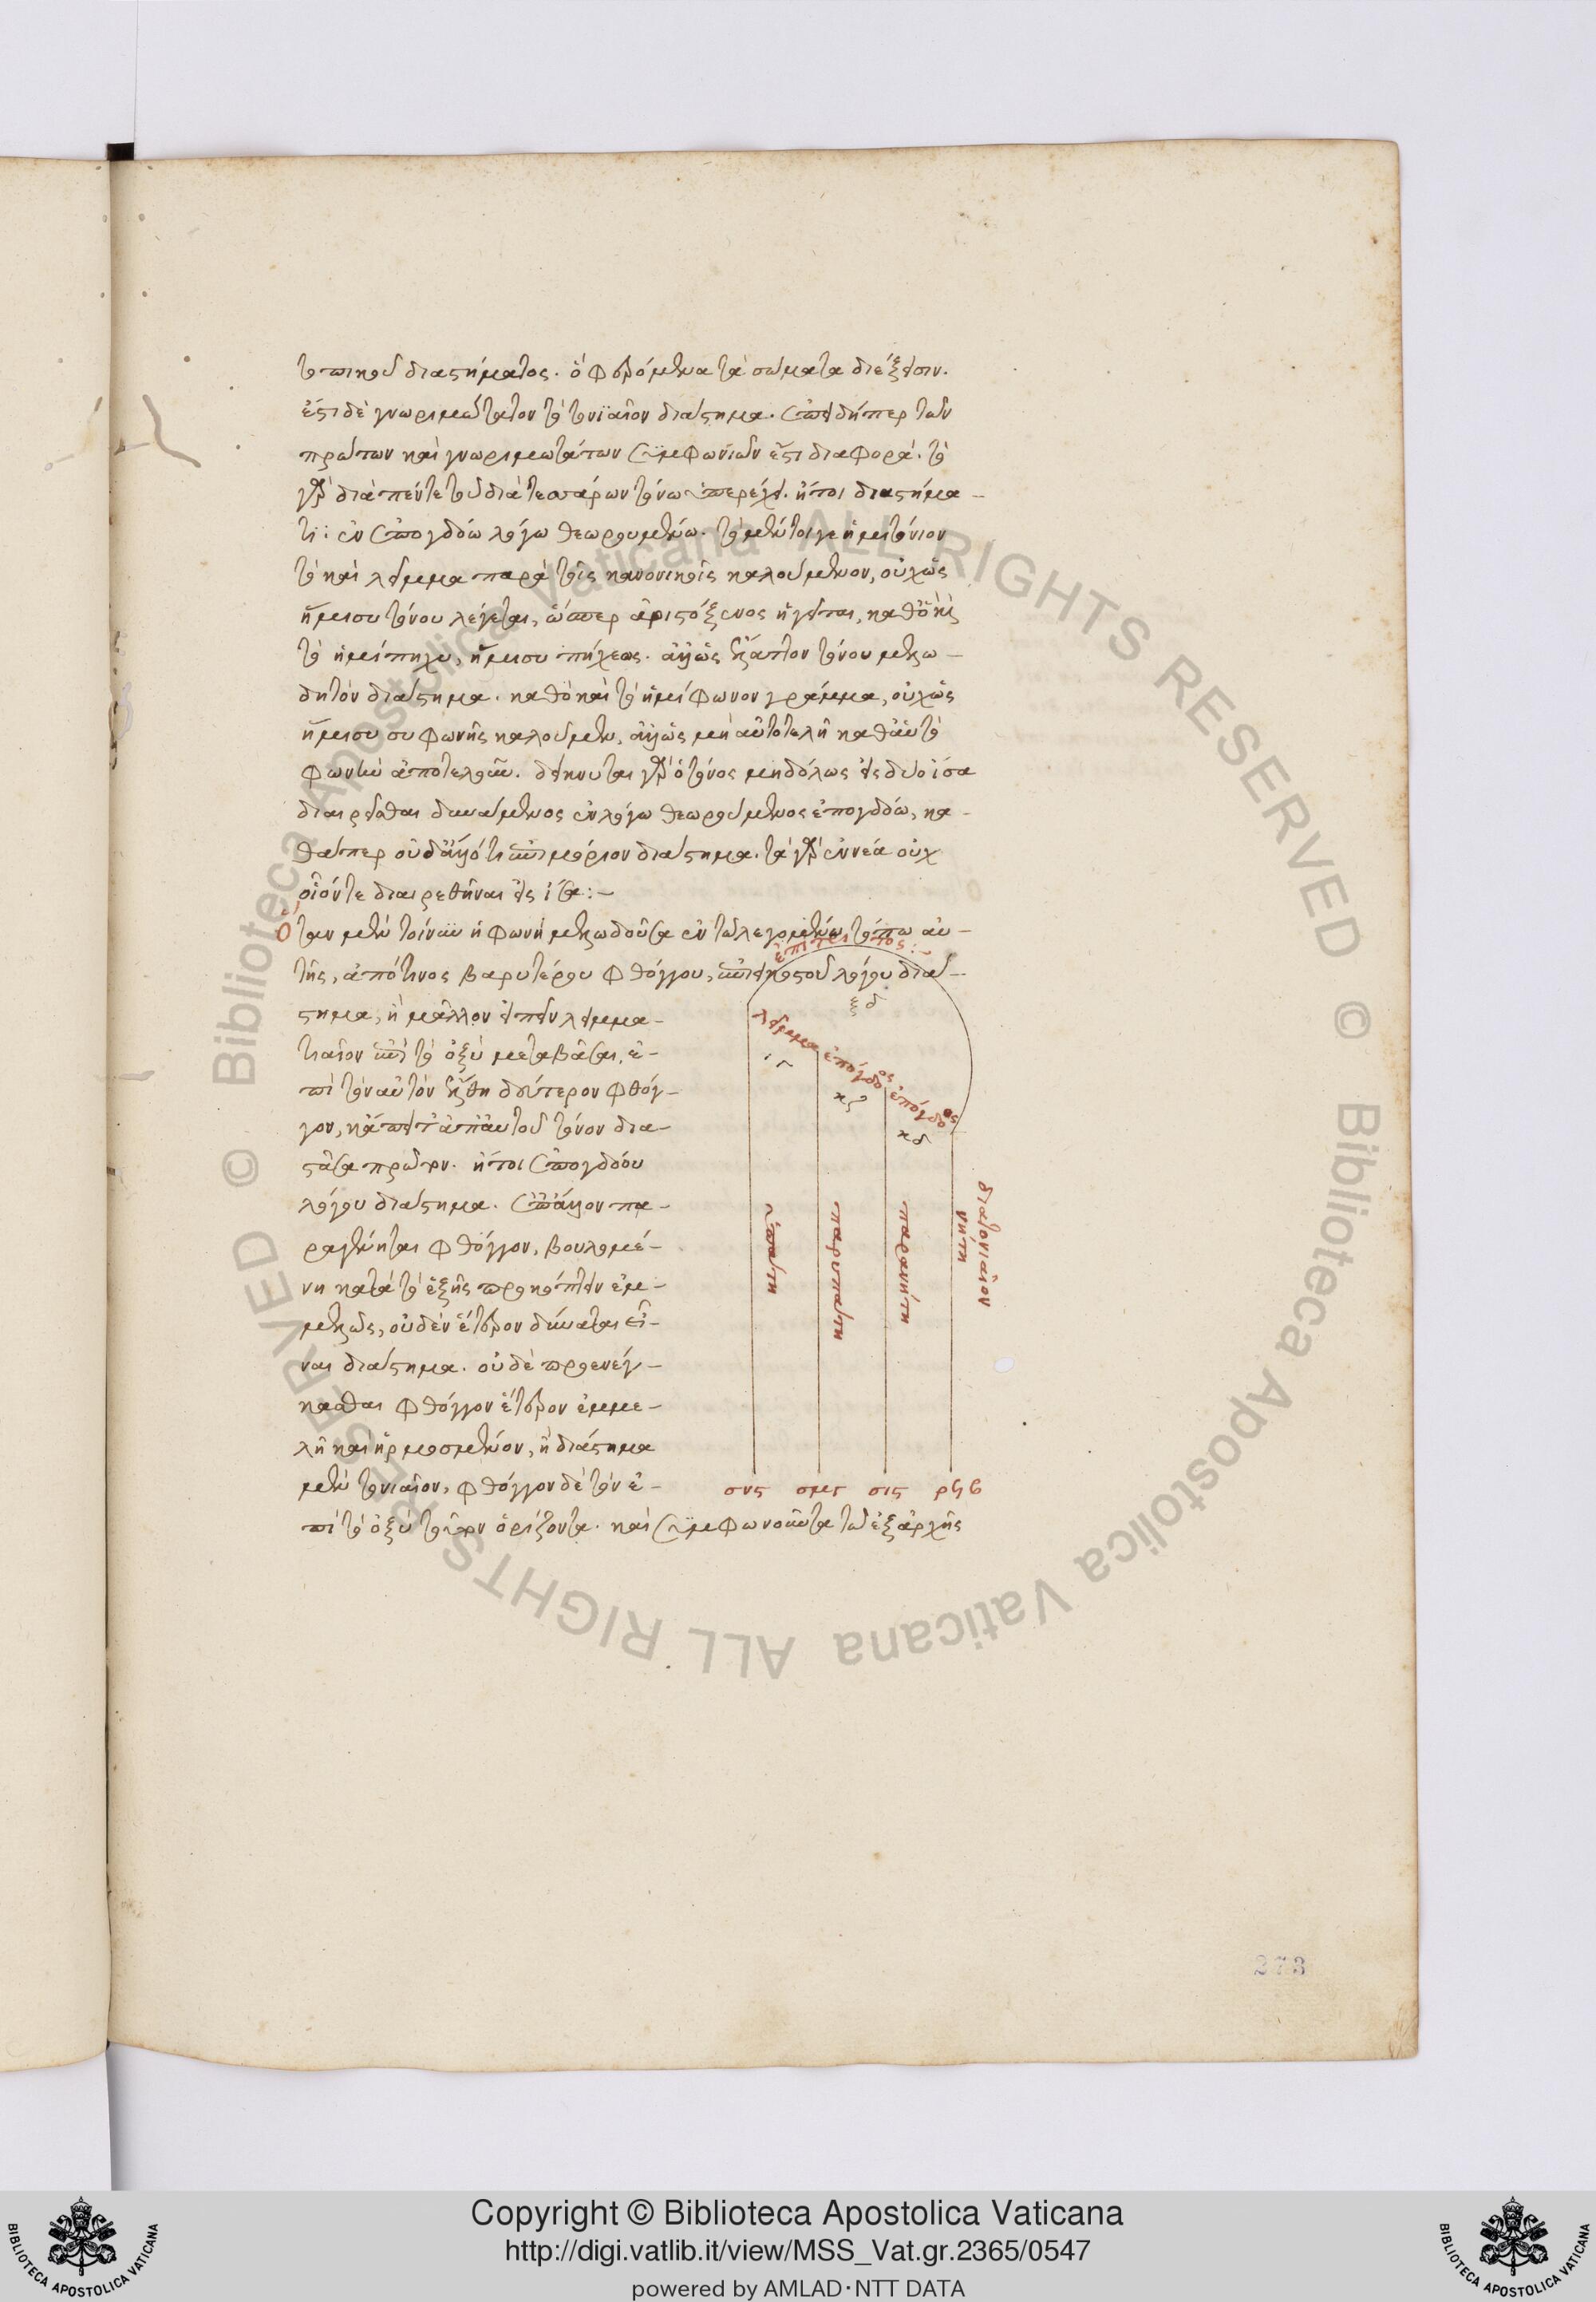 τοπικοῦ διαστήματος. ὃ φερόμενα τὰ σώματα διέξεισιν.
ἔστι δὲ γνωριμώτατον τὸ τονιαῖον διάστημα. ἐπειδήπερ τῶν
πρώτων καὶ γνωριμωτάτων συμφωνιῶν ἐστι διαφορά. τὸ
γὰρ διὰ πέντε τοῦ διὰ τεσσάρων τόνω ὑπερέχει. ἤτοι διαστήμα-
τι: ἐν ἐπογδόω λόγω θεωρουμένω. τὸ μέντοιγε ἡμιτόνιον
τὸ καὶ λεῖμμα παρὰ τοῖς κανονικοῖς καλούμενον, οὐχ ὡς
ἥμισυ τόνου λέγεται, ὥσπερ ἀριστόξενος ἡγεῖται, καθὸ καὶ
τὸ ἡμίπηχυ, ἥμισυ πήχεως. ἀλλ' ὡς ἔλαττον τόνου μελω-
δητὸν διάστημα. καθὸ καὶ τὸ ἡμίφωνον γράμμα, οὐχ ὡς
ἥμισυ φωνῆς καλοῦμεν, ἀλλ' ὡς μὴ αὐτοτελῆ καθ' αὑτὸ
φωνὴν ἀποτελοῦν. δείκνυται γὰρ ὁ τόνος μηδόλως εἰς δύο ἴσα
διαιρεῖσθαι δυνάμενος ἐν λόγω θεωρούμενος ἐπογδόω, κα-
θάπερ οὐδ' ἄλλό τι ἐπιμόριον διάστημα. τὰ γὰρ ἐννέα οὐχ
οἷόν τε διαιρεθῆναι εἰς ἴσα:-
Ὅταν μὲν τοίνυν ἡ φωνὴ μελωδοῦσα ἐν τῶ λεγομένω τόπω αὐ-
ἐπίτριτος:-
τῆς, ἀπό τινος βαρυτέρου φθόγγου, λόγου διά-
στημα, ἢ μᾶλλον εἰπεῖν λειμμα-
τιαῖον ἐπὶ τὸ ὀξὺ μεταβᾶσα, ἐ-
πὶ τὸν αὐτὸν ἔλθη δεύτερον φθόγ-
γον, κἄπειτ' ἀπ' αὐτοῦ τόνον δια-
στᾶσα πρῶτον. ἤτοι ἐπογδόου
λόγου διάστημα. ἐπ' ἄλλον πα-
ραγένηται φθόγγον, βουλομέ-
νη κατὰ τὸ ἑξῆς προκόπτειν ἐμ-
μελῶς, οὐδὲν ἕτερον δύναται εἶ-
ναι διάστημα. οὐδὲ προενέγ-
κασθαι φθόγγον ἕτερον ἐμμε-
λῆ καὶ ἡρμοσμένον, ἢ διάστημα
μὲν τονιαῖον, φθόγγον δὲ τὸν ἐ-
πὶ τὸ ὀξὺ τοῦτον ὁρίζοντα. καὶ συμφωνοῦντα τῶ ἐξ ἀρχῆς
ξδ
λεῖμμα
ἐπόγδοος
ἐπόγδοος
ιγ
κζ
κδ
ὑπάτη
παρυπάτη
παρανήτη
νήτη
διατονιαῖον
σνς
σμγ
σις
ρϟβ
273
Copyright © Biblioteca Apostolica Vaticana
http://digi.vatlib.it/view/MSS_Vat.gr.2365/0547
powered by AMLAD·NTT DATA
BIBLIOTECA APOSTOLICA VATICANA
BIBLIOTECA APOSTOLICA VATICANA
© Biblioteca Apostolica Vaticana ALL RIGHTS RESERVED
© Biblioteca Apostolica Vaticana ALL RIGHTS RESERVED